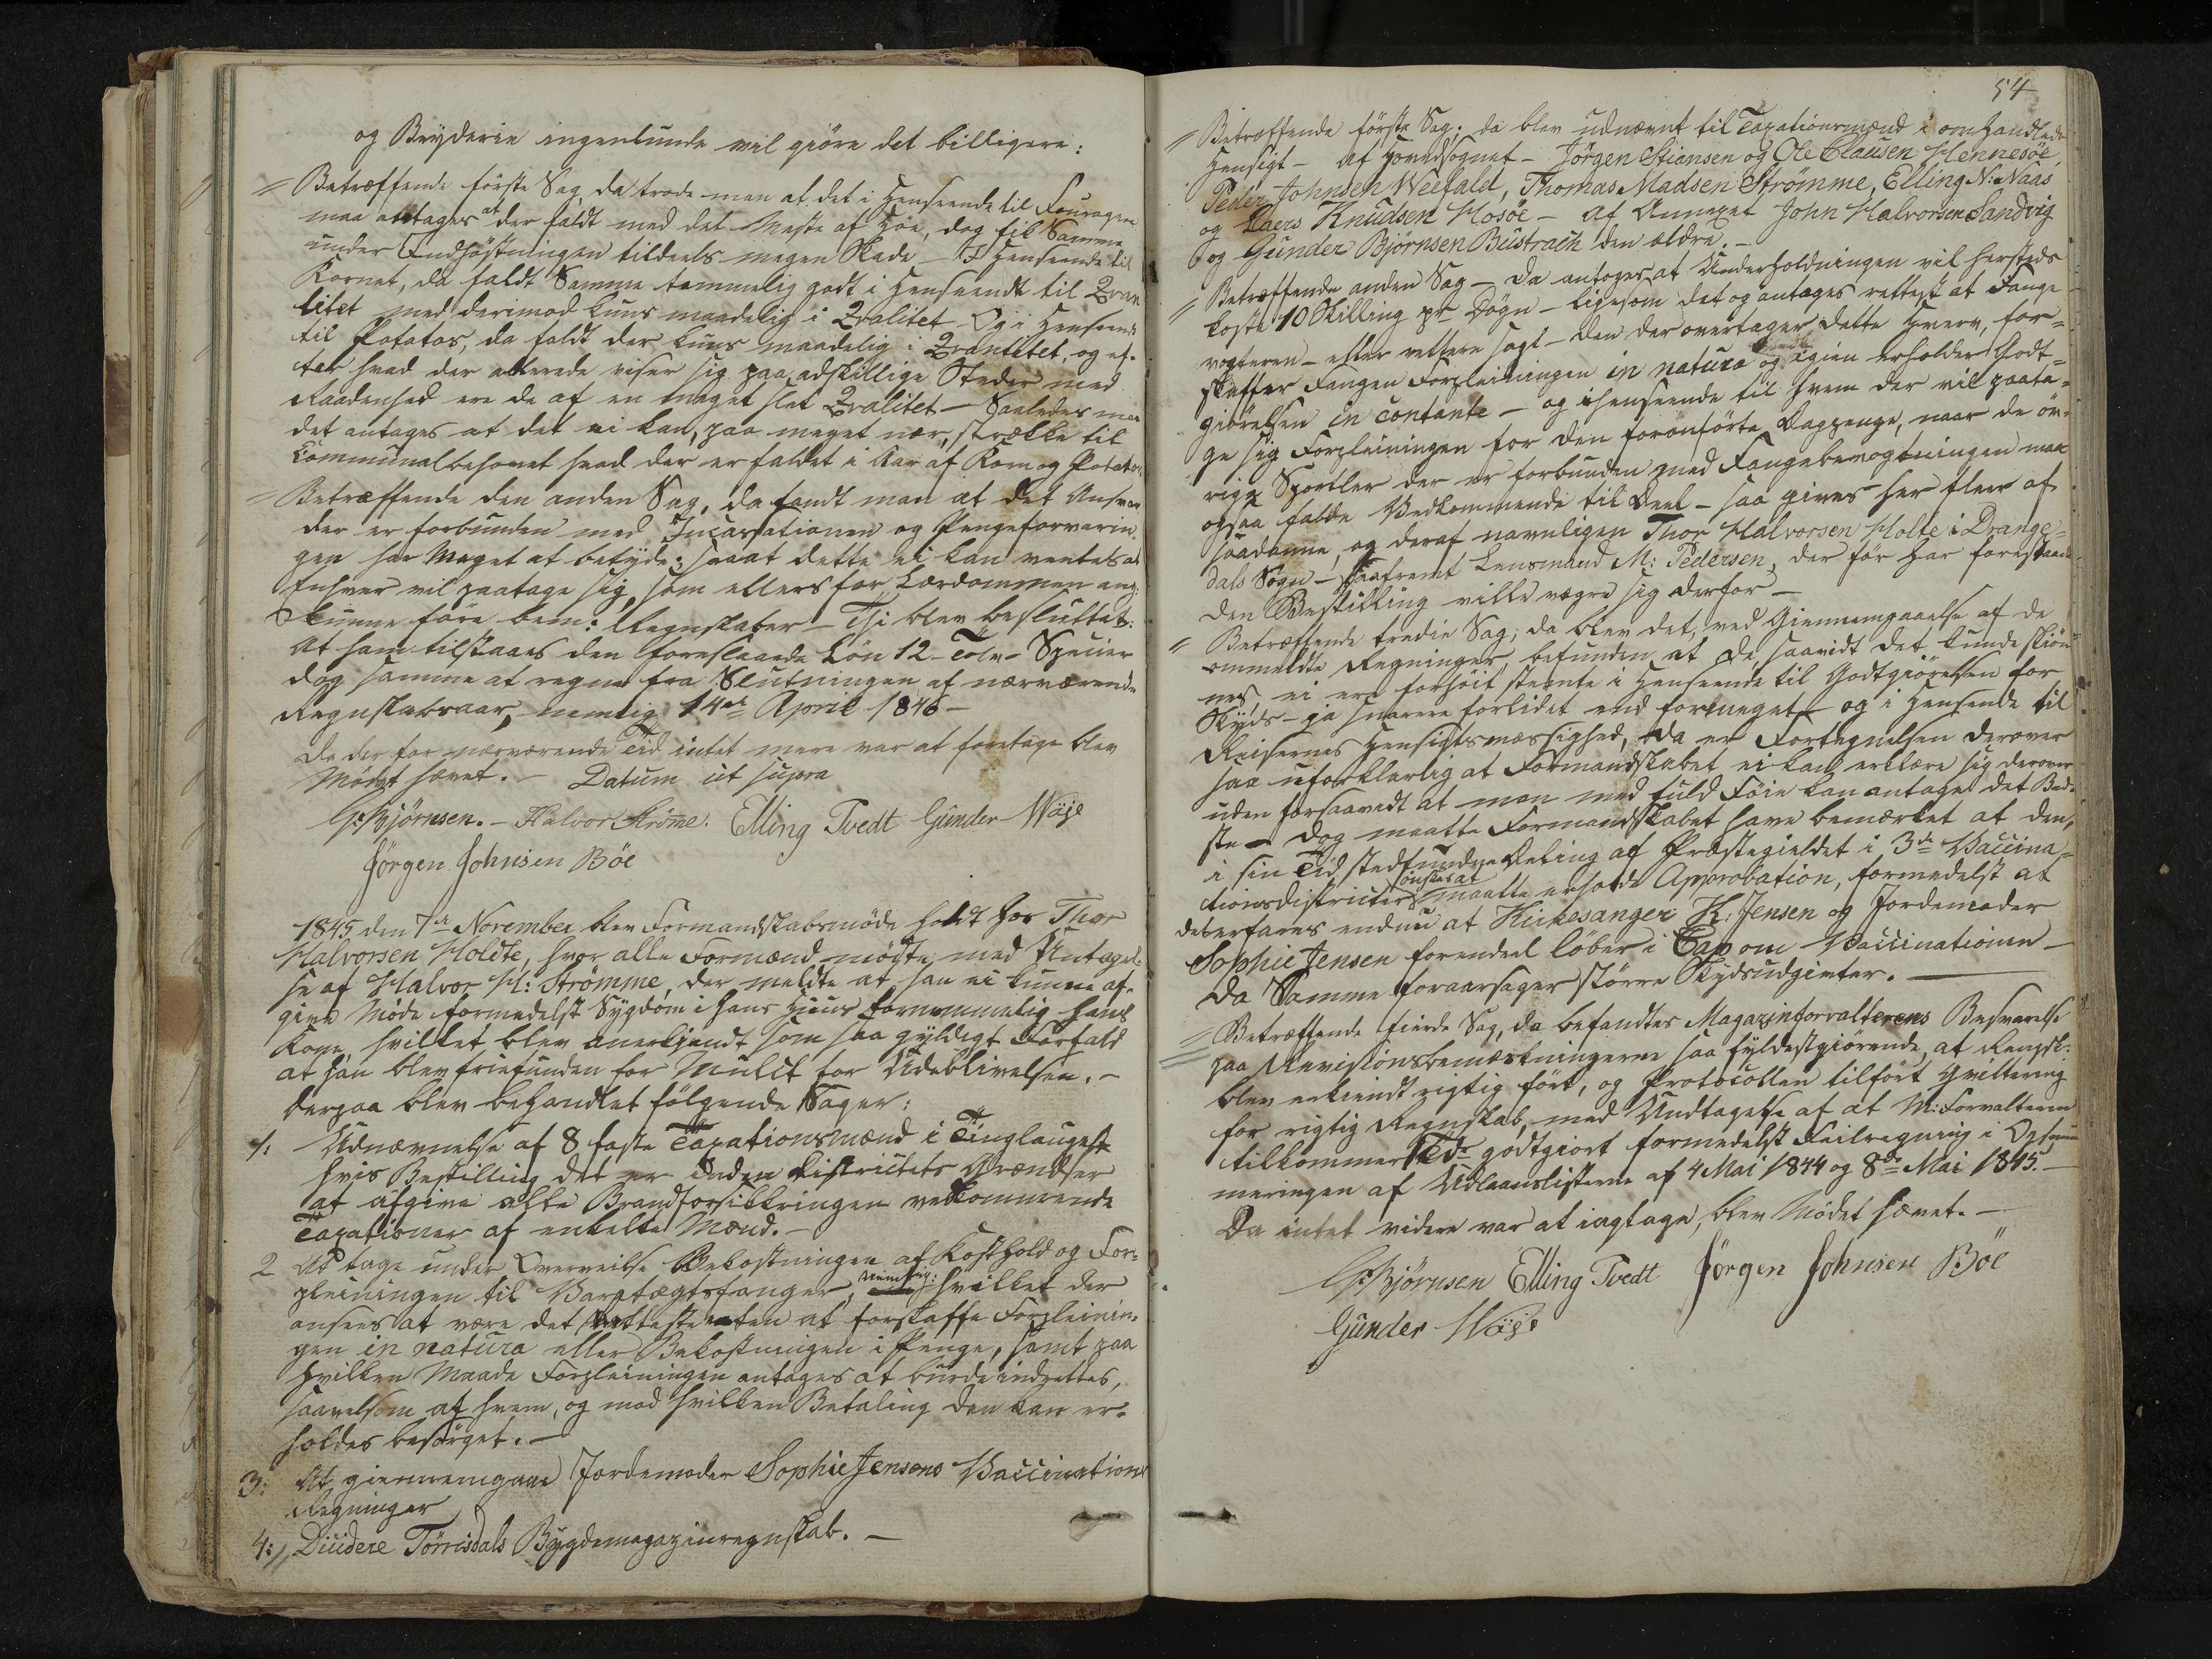 og Bryderie ingenlunde vil giöre det billigere:
Betræffende förste Sag, da troede man at det i Henseende til Fouragen
maa antages at der faldt med det Meste af Höe, dog fik Samme
under Indhöstningen tildeels megen Skade - I Henseende til
Kornet, da faldt Samme temmelig godt i Henseende til Qvan
titet med derimod kuns maadelig i Qvalitet - Og i Henseende
til Potatos, da faldt der kuns maadelig i Qvantitet, og ef-
ter hvad der allerede viser sig paa adskillige Steder med
Raadenhed ere de af en meget slet Qvalitet - Saaledes maa
det antages at det ei kan, paa meget nær, strække til
Communalbehovet hvad der er faldet i Aar af Korn og Potatos.
Betræffende den anden Sag, da fandt man at det Ansvar
der er forbunden med Incassationen og Pengeforvarin
gen har Meget at betyde; saaat dette ei kan ventes at
Enhver vil paatage sig, som ellers for Lærdommen ang:
kunne före bem: Regnskaber - Thi blev besluttet:
At ham tilstaaes den foreslaaede Lön 12 - Tolv - Specier
dog samme at regne fra Slutningen af nærværende
Regnskabsaar, nemlig 14de April 1846 -
Da der for nærværende Tid intet mere var at foretage blev
Mödet hævet. - Datum ut supra
G: Björnsen. - Halvor Strömme. Elling Tvedt Gunder Wöje
Jörgen Johnsen Böe
1845 den 7de November blev Formandskabsmöde holdt hos Thor
Halvorsen Holdte, hvor alle Formænd mödte, med Untagel-
se af Halvor H: Strömme, der meldte at han ei kunne af-
give Möde formedelst Sygdom i hans Huus fornemmelig hans
Kone, hvilket blev anerkjendt som saa gyldigt Forfald
at han blev friefunden for Mulct for Udeblivelsen. -
Derpaa blev behandlet fölgende Sager:
1: Udnævnelse af 8 faste Taxationsmænd i Tinglauget
hvis Bestilling det er inden Districtets Grændser
at afgive alle Brandforsikkringen vedkommende
Taxationer af enkelte Mænd. -
2 At tage under Overveielse Bekostningen af Kosthold og For-
pleiningen til Varetægtsfanger, nemlig: hvilket der
ansees at være det retteste enten at forskaffe Forpleinin-
gen in natura eller Bekostningen i Penge, samt paa
hvilken Maade Forpleiningen antages at burde indrettes,
saavelsom af hvem, og mod hvilken Betaling den kan er-
holdes besörget. -
3: At giennemgaae Jordemoder Sophie Jensens Vaccinations
Regninger
4: Diidere Törrisdals Bygdemagazinregnskab. -
54
Betræffende förste Sag; da blev udnævnt til Taxationsmænd i omhandlede
Hensigt - af Hovedsognet - Jörgen Stiansen og Ole Clausen Hennesöe,
Peder Johnsen Weefald, Thomas Madsen Strömme, Elling N: Naas
og Laers Knudsen Hosöe - af Annexet John Halvorsen Sandvig
og Gunder Björnsen Bustrack den ældre. -
Betræffende anden Sag - da antoges at Underholdningen vil hersteds
koste 10 Skilling pr Dögn - ligesom det og antages rettest at Fange
vogteren - eller rettere sagt - den der overtager dette Hverv, for-
skaffer Fangen Forpleiningen in natura og igien erholder Godt-
giörelsen in contante - og ihenseende til hvem der vil paata-
ge sig Forpleiningen for den foranförte Dagpenge, naar de öv-
rige Sportler der er forbunden med Fangebevogtningen maa
ogsaa falde Vedkommende til Deel - saa gives her fleer af
saadanne, og deraf navnligen Thor Halvorsen Holte i Drange-
dals Sogn - saafremt Lensmand M: Pedersen, der för har forestaaet
den Bestilling ville vægre sig derfor -
Betræffende tredie Sag; da blev det, ved Giennemgaaelse af de
ommeldte Regninger, befunden at de, saavidt det kunde skiön-
nes ei ere forhöit steente i Henseende til Godtgiörelsen for
Skyds - ja snarere forlidet end formeget - og i Henseende til
Reisernes Hensigtsmæssighed, da er Fortegnelsen derover
saa uforklarlig at Formandskabet ei kan erklære sig derover
uden forsaavedt at man med fuld Föie kan antage det Bed-
ste - Dog maatte Formandskabet have bemærket at den,
i sin Tid stedfundne Deling af Præstegieldet i 3de Vaccina-
tionsdistricter önskes at maatte erholde Approbation, formedelst at
det erfares endnu at Kirkesanger K: Jensen og Jordemoder
Sophie Jensen forendeel löber i Cap om Vaccinationen -
da Samme foraarsager större Skydsudgivter. -
Betræffende fierde Sag, da befandtes Magazinforvalterens Besvarelse
paa Revisionsbemærkningerne saa fyldestgiörende, at Rengsk:
blev erkiendt rigtig fört, og Protocollen tilfört Qvittering
for rigtig Regnskab, med Undtagelse af at M: Forvalteren
tilkommer 1 Tde godtgiort formedelst Feilregning i Opsum
meringen af Udlaanslisterne af 4 Mai 1844 og 8de Mai 1845. -
Da intet videre var at iagtage, blev Mödet hævet. -
G: Björnsen Elling Tvedt Jörgen Johnsen Böe
Gunder Wöje